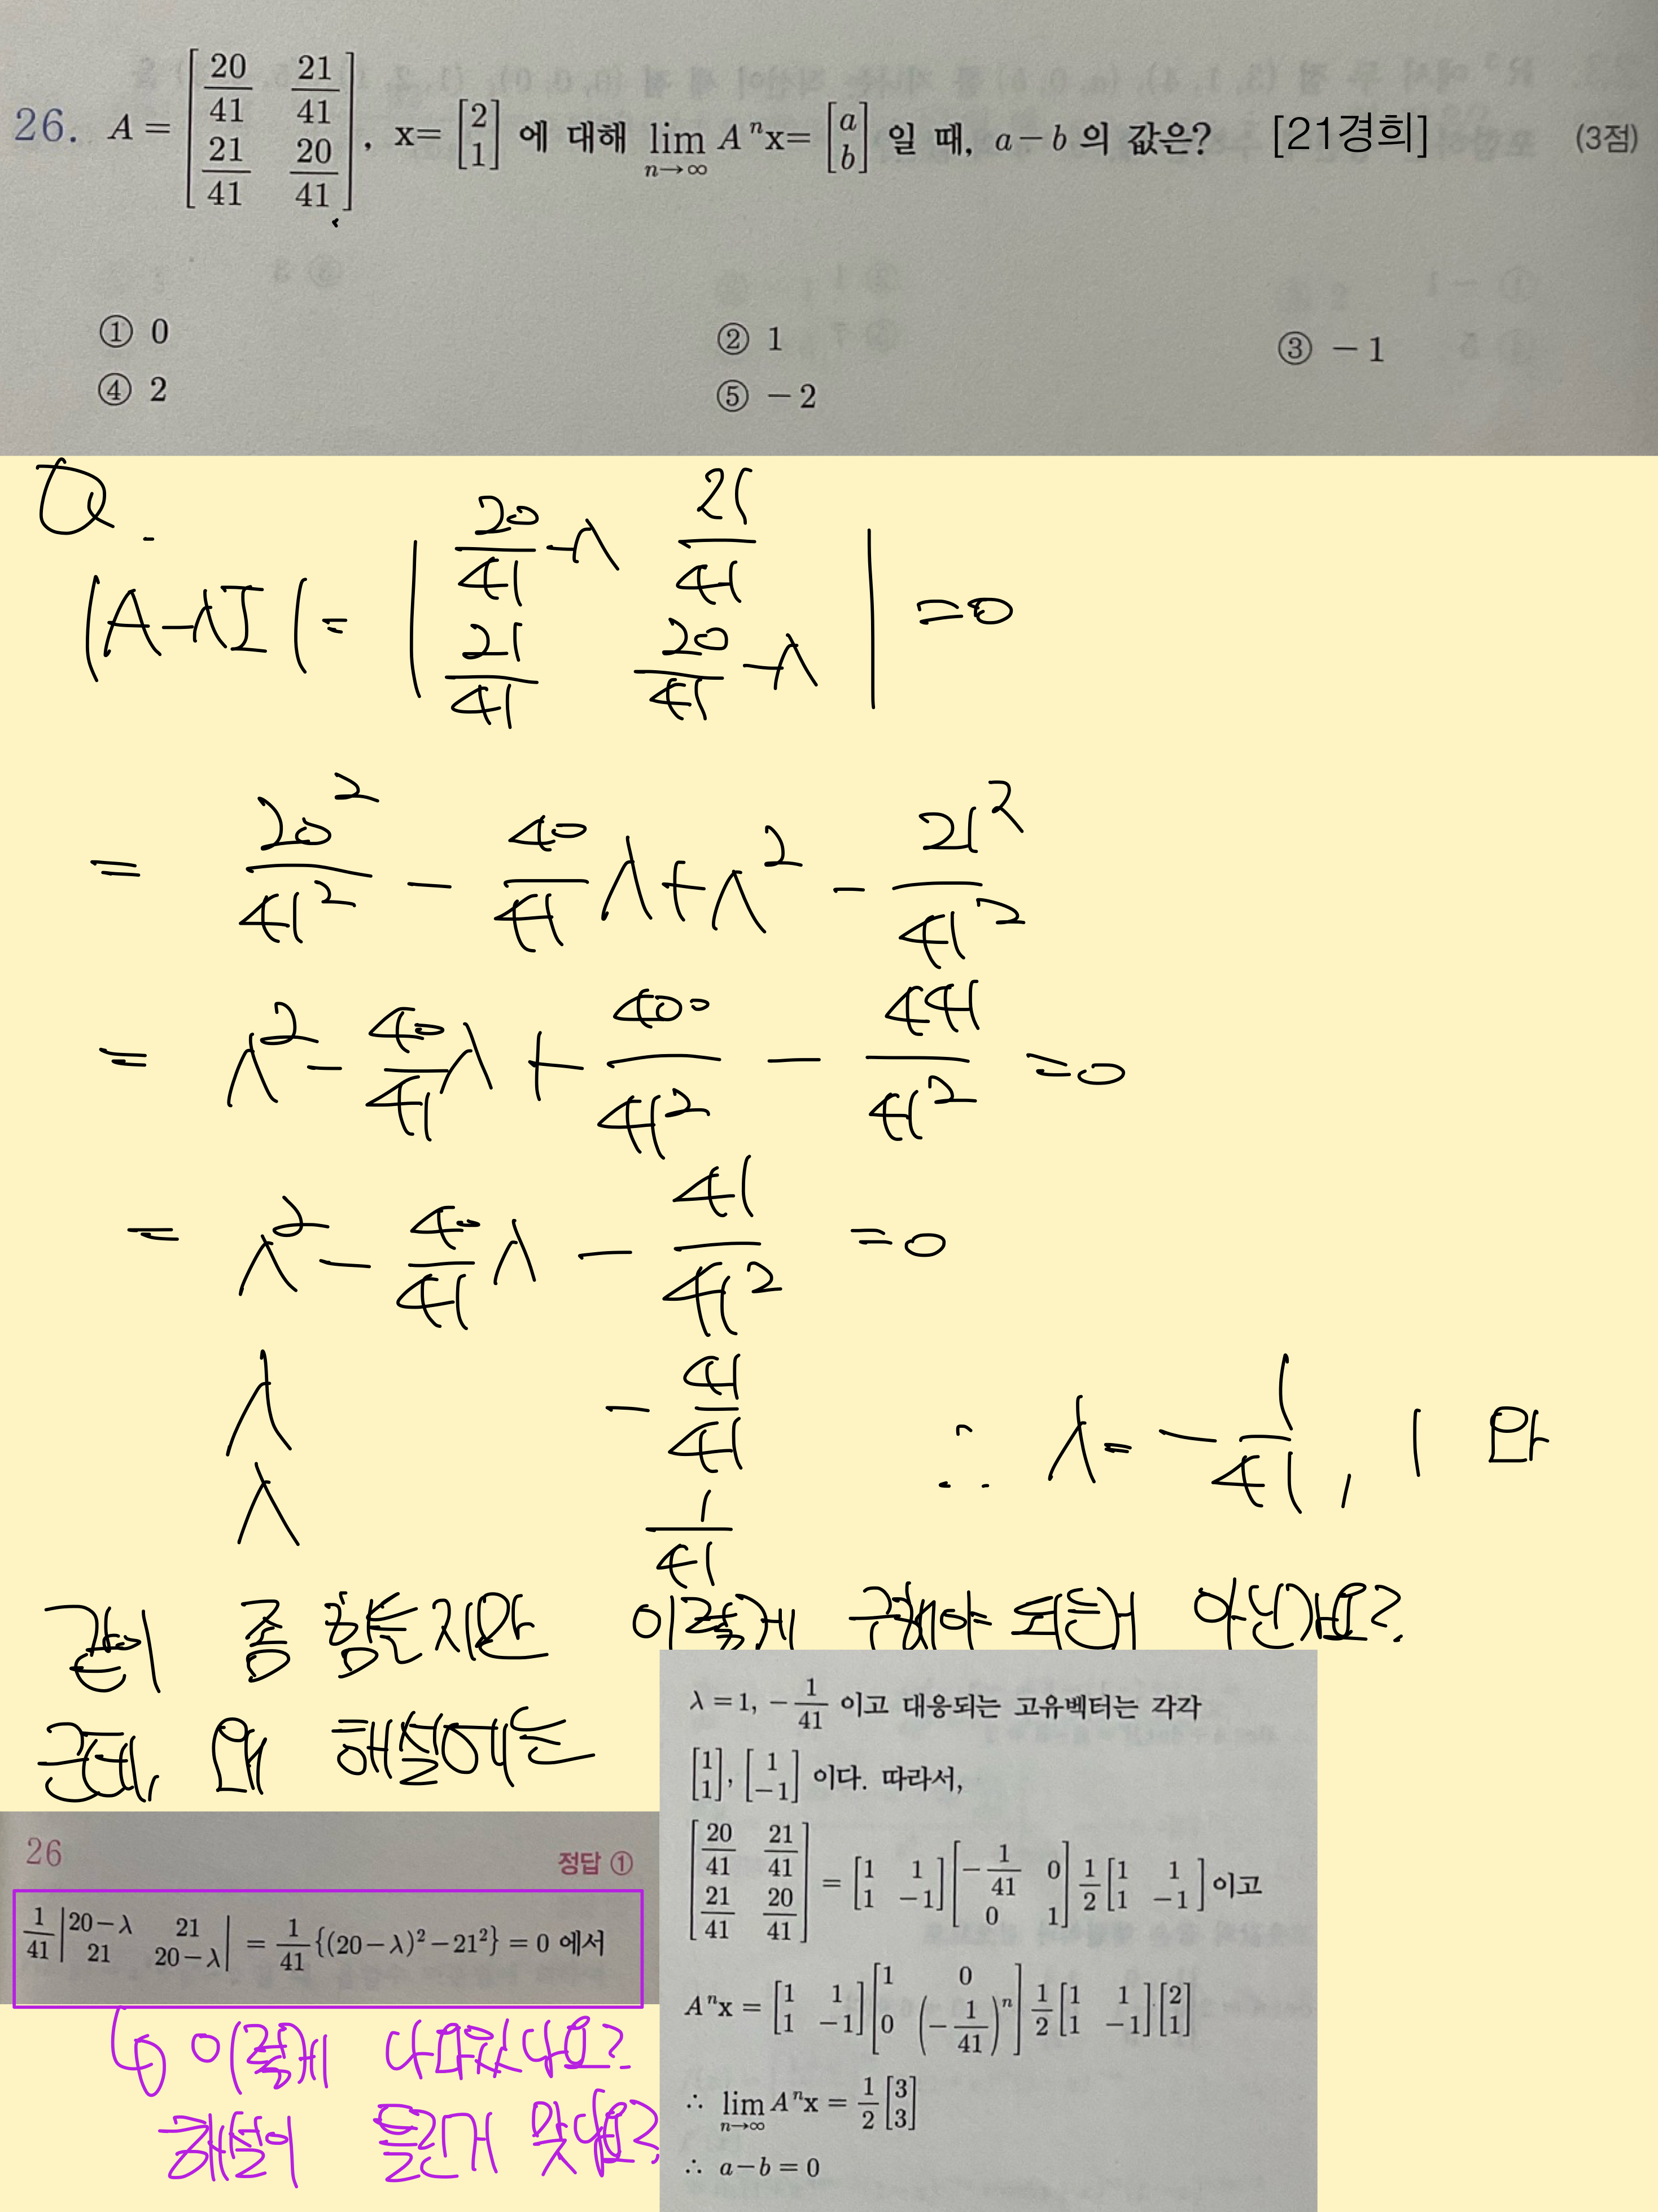 26. A = [20/41 21/41; 21/41 20/41], x= [2; 1] 에 대해 lim_{n→∞} Aⁿx= [a; b] 일 때, a-b 의 값은? [21경희] (3점)
① 0 ② 1 ③ -1
④ 2 ⑤ -2
Q.
|A-λI| = |20/41-λ 21/41; 21/41 20/41-λ| =0
= 20²/41² - 40/41 λ+λ² - 21²/41²
= λ² - 40/41 λ + 400/41² - 441/41² =0
= λ² - 40/41 λ - 41/41² =0
λ -41/41
λ 1/41
∴ λ= -1/41, 1
이렇게 구해야 되는거 아닌가요?
근데, 왜 해설에는
26 정답 ①
1/41 |20-λ 21; 21 20-λ| = 1/41 {(20-λ)²-21²} = 0 에서
↳ 이렇게 나와있나요?
해설이 틀린거 맞나요?
λ = 1, -1/41 이고 대응되는 고유벡터는 각각
[1; 1], [1; -1] 이다. 따라서,
[20/41 21/41; 21/41 20/41] = [1 1; 1 -1] [-1/41 0; 0 1] 1/2 [1 1; 1 -1] 이고
Aⁿx = [1 1; 1 -1] [1 0; 0 (-1/41)ⁿ] 1/2 [1 1; 1 -1] [2; 1]
∴ lim_{n→∞} Aⁿx = 1/2 [3; 3]
∴ a-b = 0